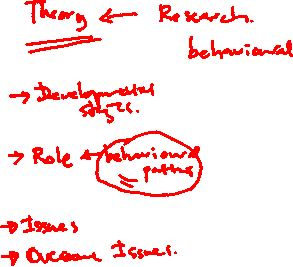 Theory ← Research.
behavioural
→ Developmental
stages.
→ Role ← behavioural
patterns
→ Issues
→ Overcome Issues.